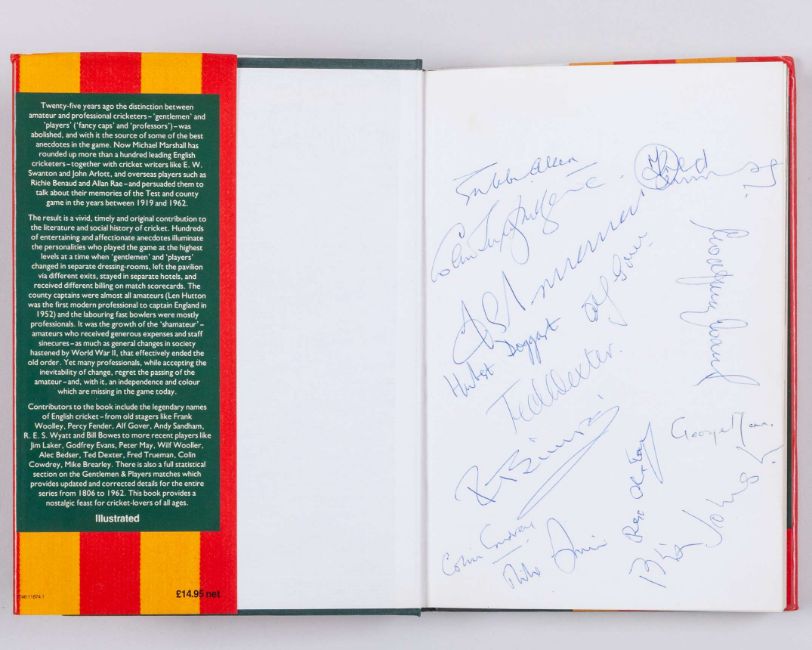 Twenty-five years ago the distinction between
amateur and professional cricketers – 'gentlemen' and
'players' ('fancy caps' and 'professors') – was
abolished, and with it the source of some of the best
anecdotes in the game. Now Michael Marshall has
rounded up more than a hundred leading English
cricketers – together with cricket writers like E. W.
Swanton and John Arlott, and overseas players such as
Richie Benaud and Allan Rae – and persuaded them to
talk about their memories of the Test and county
game in the years between 1919 and 1962.
The result is a vivid, timely and original contribution to
the literature and social history of cricket. Hundreds
of entertaining and affectionate anecdotes illuminate
the personalities who played the game at the highest
levels at a time when 'gentlemen' and 'players'
changed in separate dressing-rooms, left the pavilion
via different exits, stayed in separate hotels, and
received different billing on match scorecards. The
county captains were almost all amateurs (Len Hutton
was the first modern professional to captain England in
1952) and the labouring fast bowlers were mostly
professionals. It was the growth of the 'shamateur' –
amateurs who received generous expenses and staff
sinecures – as much as general changes in society
hastened by World War II, that effectively ended the
old order. Yet many professionals, while accepting the
inevitability of change, regret the passing of the
amateur – and, with it, an independence and colour
which are missing in the game today.
Contributors to the book include the legendary names
of English cricket – from old stagers like Frank
Woolley, Percy Fender, Alf Gover, Andy Sandham,
R. E. S. Wyatt and Bill Bowes to more recent players like
Jim Laker, Godfrey Evans, Peter May, Wilf Wooller,
Alec Bedser, Ted Dexter, Fred Trueman, Colin
Cowdrey, Mike Brearley. There is also a full statistical
section on the Gentlemen & Players matches which
provides updated and corrected details for the entire
series from 1806 to 1962. This book provides a
nostalgic feast for cricket-lovers of all ages.
Illustrated
£14.95 net
Gubby Allen
Colin
Alf Gover
Godfrey Evans
Hubert Doggart
Ted Dexter
George Mann
Colin Cowdrey